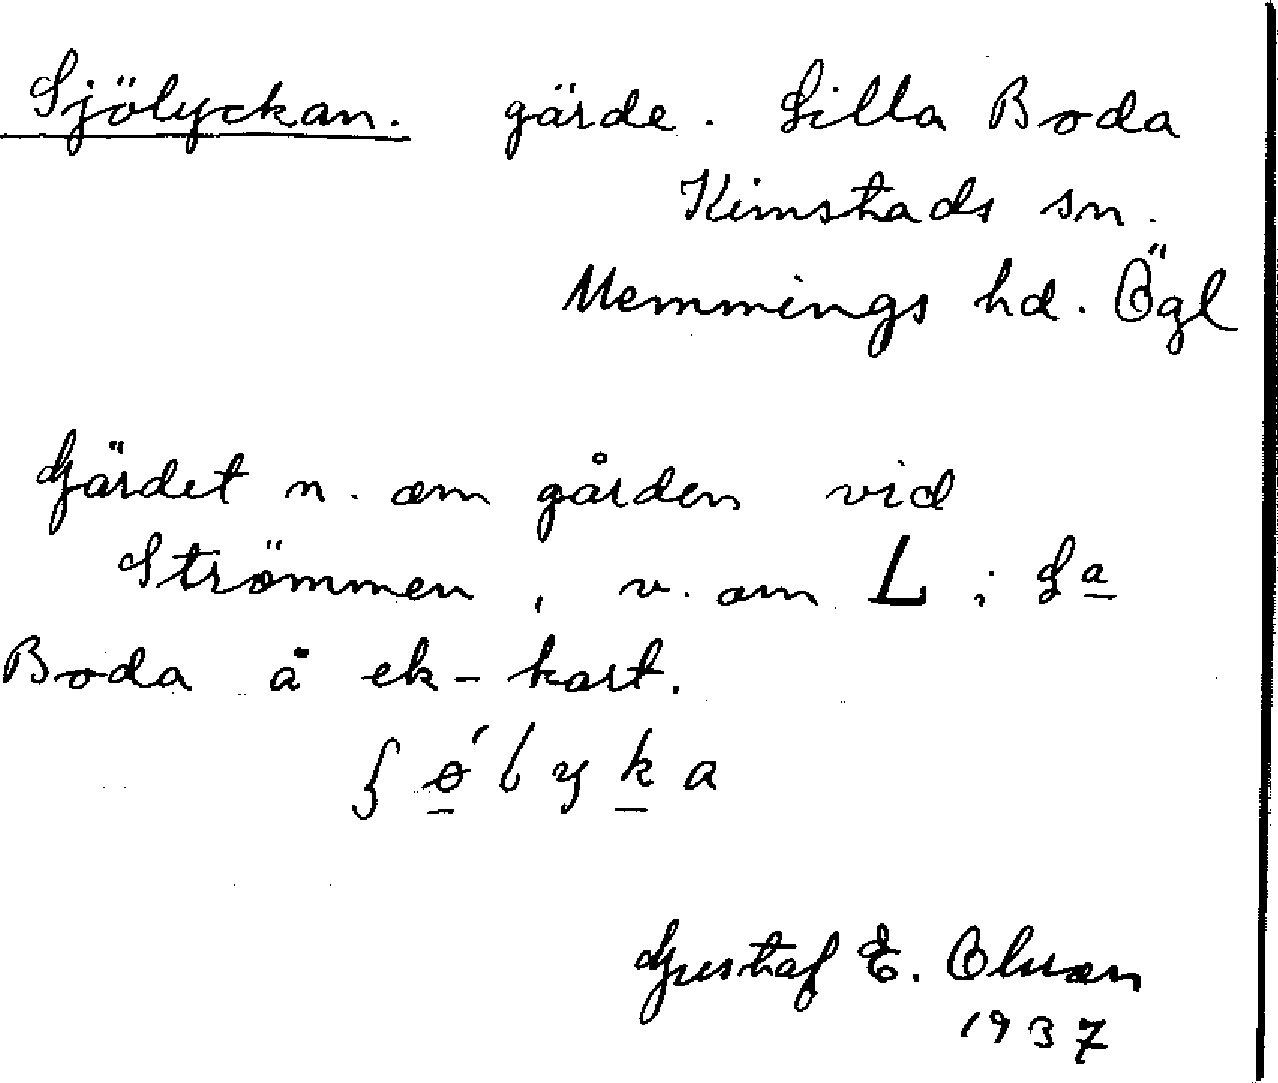 Sjölyckan. gärde. Lilla Boda
Kimstads sn.
Memmings hd. Ögl
Gärdet n. om gården vid
Strömmen, v. om L i La
Boda å ek-kart.
ʃ ǿ l y k a
Gustaf E. Olsson
1937